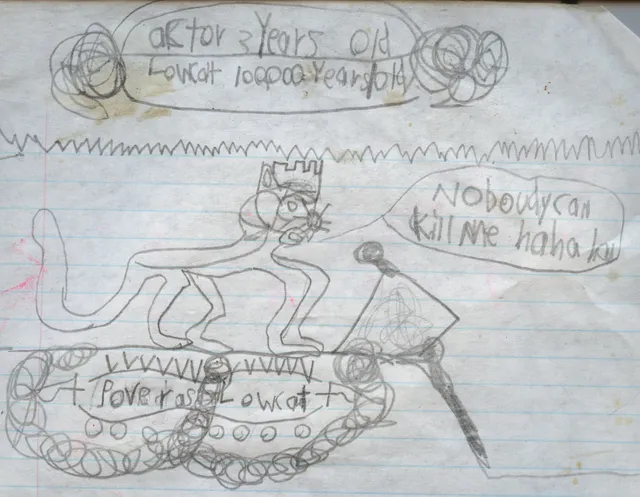 aktor 3 Years Old
Lowcat 100,000 Years old
Noboudy can
kill Me haha
Lowcat